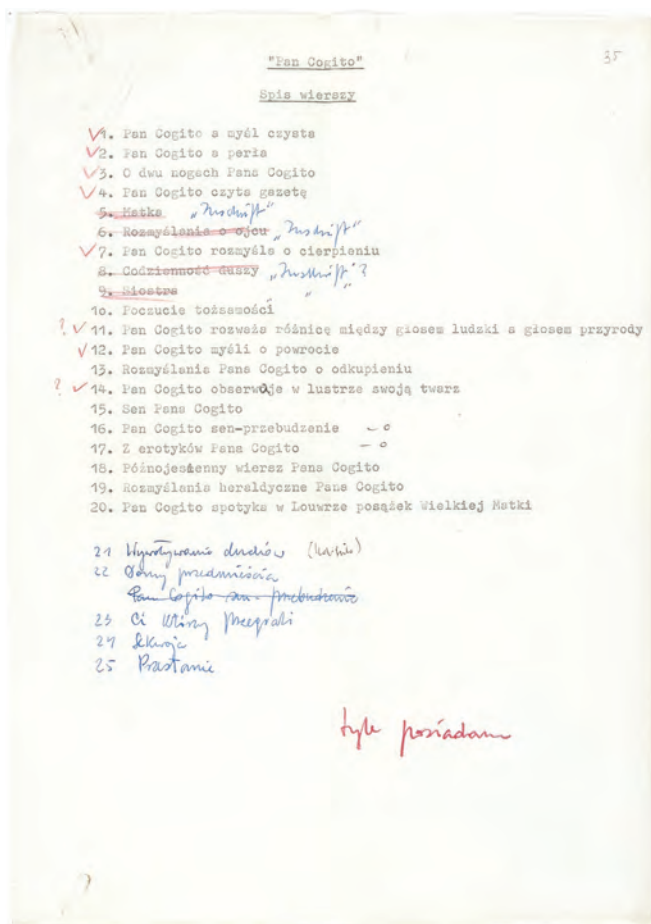 35
"Pan Cogito"
Spis wierszy
1. Pan Cogito a myśl czysta
2. Pan Cogito a perła
3. O dwu nogach Pana Cogito
4. Pan Cogito czyta gazetę
5. Matka
6. Rozmyślania o ojcu
7. Pan Cogito rozmyśla o cierpieniu
8. Codzienność duszy
9. Siostra
10. Poczucie tożsamości
? 11. Pan Cogito rozważa różnicę między głosem ludzki a głosem przyrody
12. Pan Cogito myśli o powrocie
13. Rozmyślania Pana Cogito o odkupieniu
? 14. Pan Cogito obserwuje w lustrze swoją twarz
15. Sen Pana Cogito
16. Pan Cogito sen-przebudzenie
17. Z erotyków Pana Cogito
18. Późnojesienny wiersz Pana Cogito
19. Rozmyślania heraldyczne Pana Cogito
20. Pan Cogito spotyka w Louwrze posążek Wielkiej Matki
21 Wywoływanie duchów
22 Domy przedmieścia
Pan Cogito sen - przebudzenie
23 Ci którzy przegrali
24 Sekwoja
25 Przesłanie
tyle posiadam